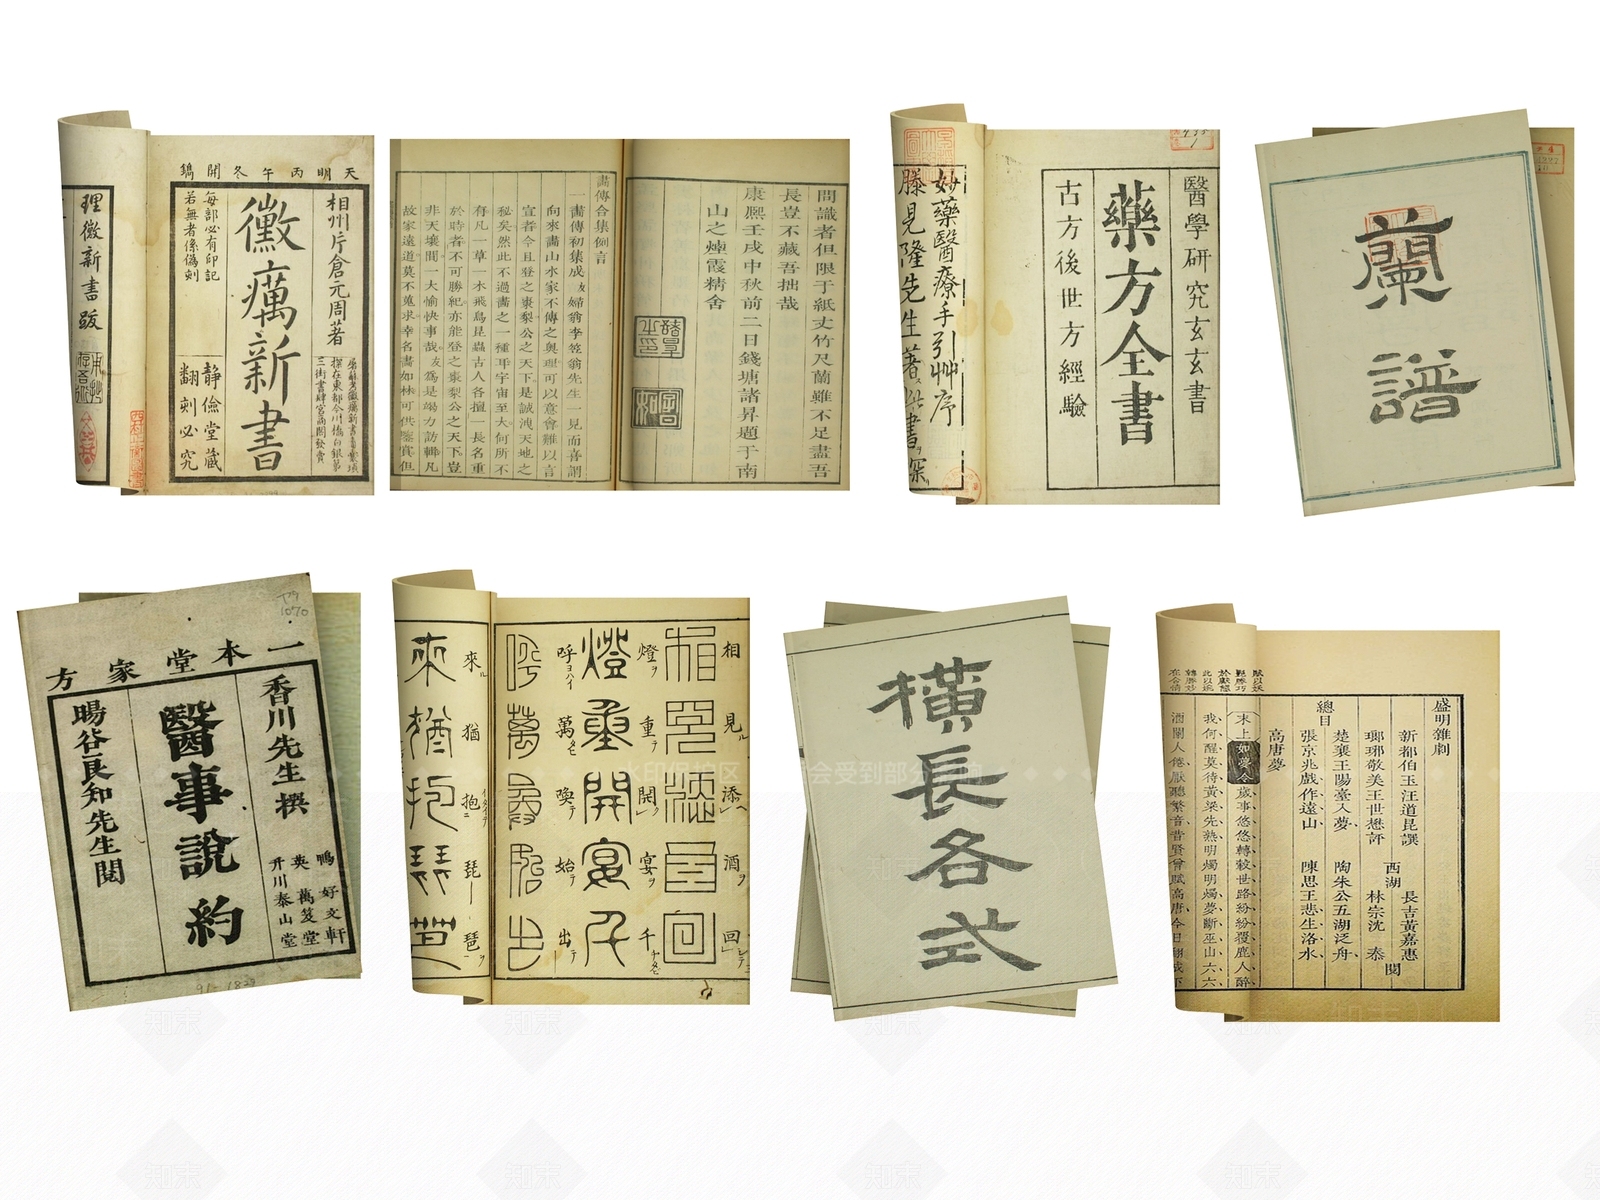 天明丙午冬開鐫
相州片倉元周著
黴癘新書
每部必有印記
若無者係偽刻
靜儉堂藏
翻刻必究
理黴新書跋
問識者但限于紙丈竹尺蘭雖不足盡吾
長豈不藏吾拙哉
康熙壬戌中秋前二日錢塘諸昇題于南
山之煙霞精舍
畫傳合集例言
一畫傳初集成
向來畫山水家不傳之奧理可以意會難以言
宣者今且登之棗梨公之天下是誠洩天地之
秘矣然此不過畫之一種耳宇宙至大何所不
有凡一草一木飛鳥昆蟲古人各擅一長名重
於時者不可勝紀亦能登之棗梨公之天下豈
非天壤間一大愉快事哉
故家遠道莫不蒐求幸名畫如林可供鑒賞但
醫學研究玄玄書
藥方全書
古方後世方經驗
妙藥醫療手引艸序
滕見隆先生著
蘭譜
一本堂家方
香川先生撰
醫事說約
暘谷良知先生閱
鴨好文軒
英萬笈堂
升川泰山堂
相見ル添ヘ酒ヲ回
相見添酒回
燈ヲ重ヲ開ク宴ヲ千
燈重開宴千
呼萬喚テ始テ出テ
呼萬喚始出
來ル猶抱琵琶ヲ
來猶抱琵琶
橫長各式
盛明雜劇
新都伯玉汪道昆譔
瑯琊敬美王世懋評
西湖
長吉黃嘉惠
林宗沈泰
閱
總目
楚襄王陽臺入夢
陶朱公五湖泛舟
張京兆戲作遠山
陳思王悲生洛水
高唐夢
末上
如夢令
歲事悠悠轉轂世路紛紛覆鹿人醉
我何醒莫待黃粱先熟明燭明燭夢斷巫山六六
酒闌人倦厭聽繁音昔賢曾賦高唐今日翻成下